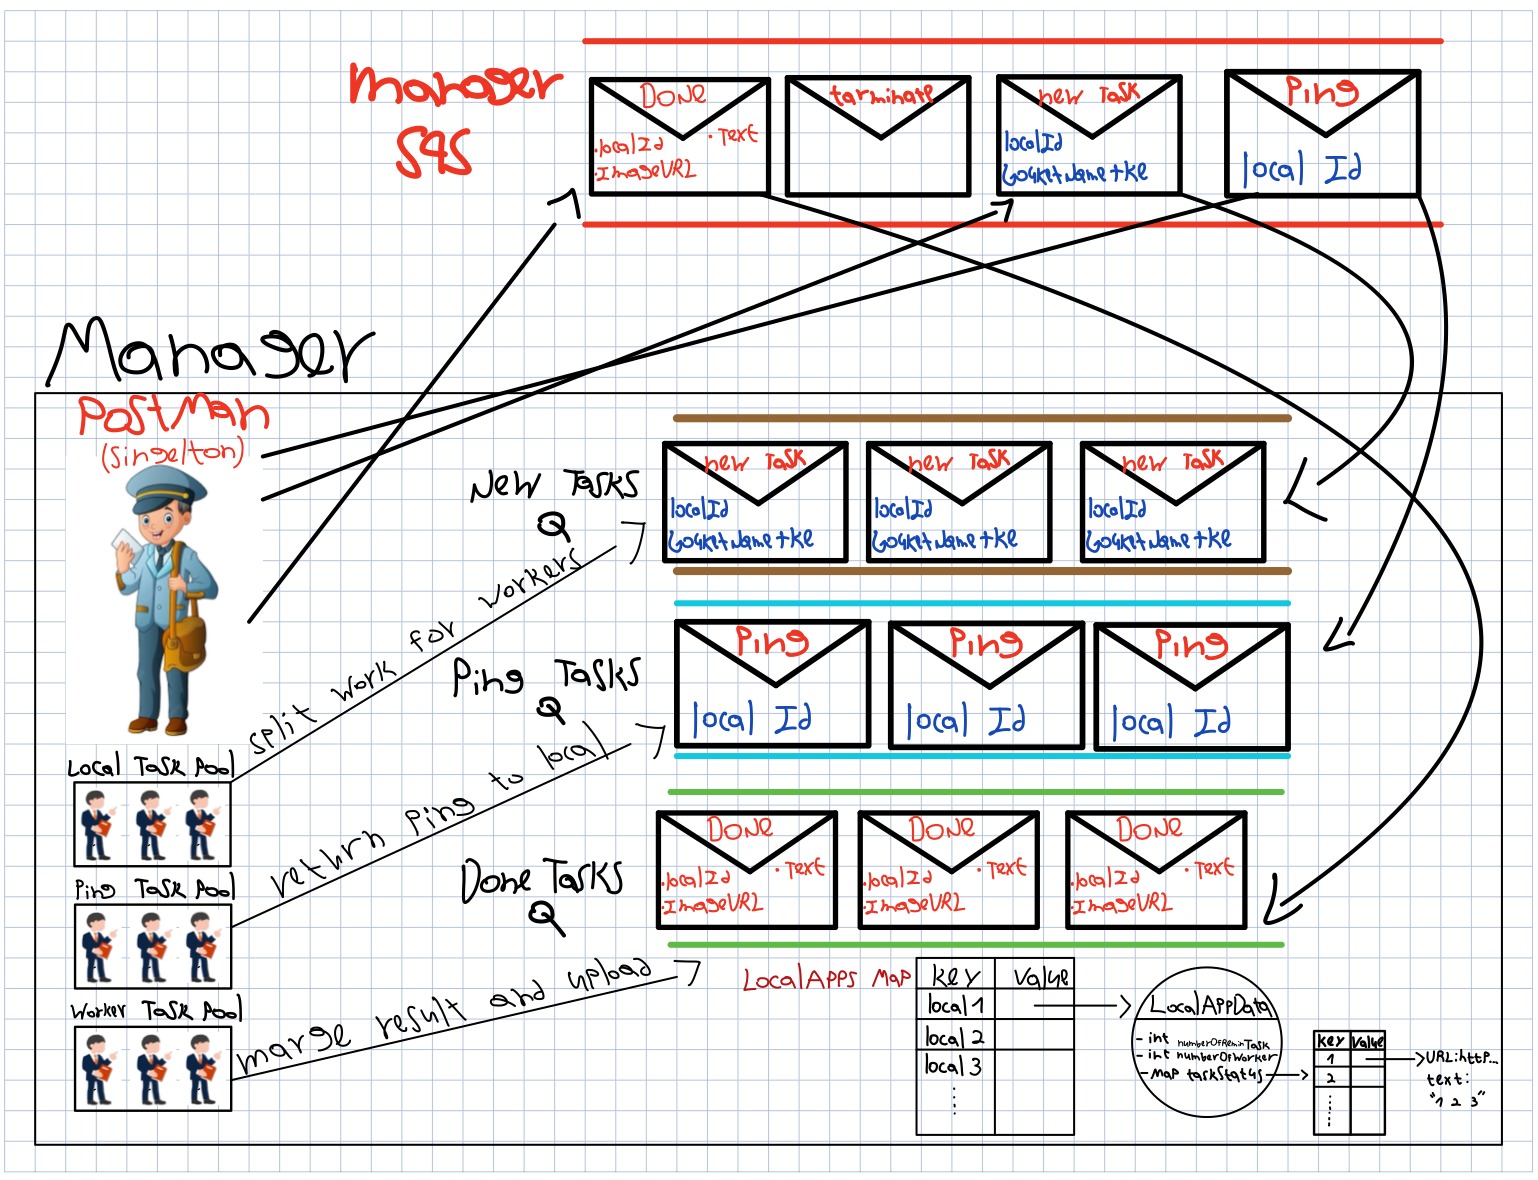 Manager
SQS
DONE
.localId
.ImageURL
.Text
tarminate
new Task
localId
Ping
local Id
Manager
PostMan
(Singelton)
New Tasks
Q
new Task
localId
new Task
localId
new Task
localId
split work for workers
Ping Tasks
Q
Ping
local Id
Ping
local Id
Ping
local Id
Local Task Pool
return Ping to local
Ping Task Pool
Done Tasks
Q
DONE
.localId
.ImageURL
.Text
DONE
.localId
.ImageURL
.Text
DONE
.localId
.ImageURL
.Text
Worker Task Pool
marge result and upload
LocalApps Map
key value
local 1
local 2
local 3
LocalAppData
- int numberOfReminTask
- int numberOfWorker
- Map taskStatus
key value
1
2
URL:http...
text:
"1 2 3"